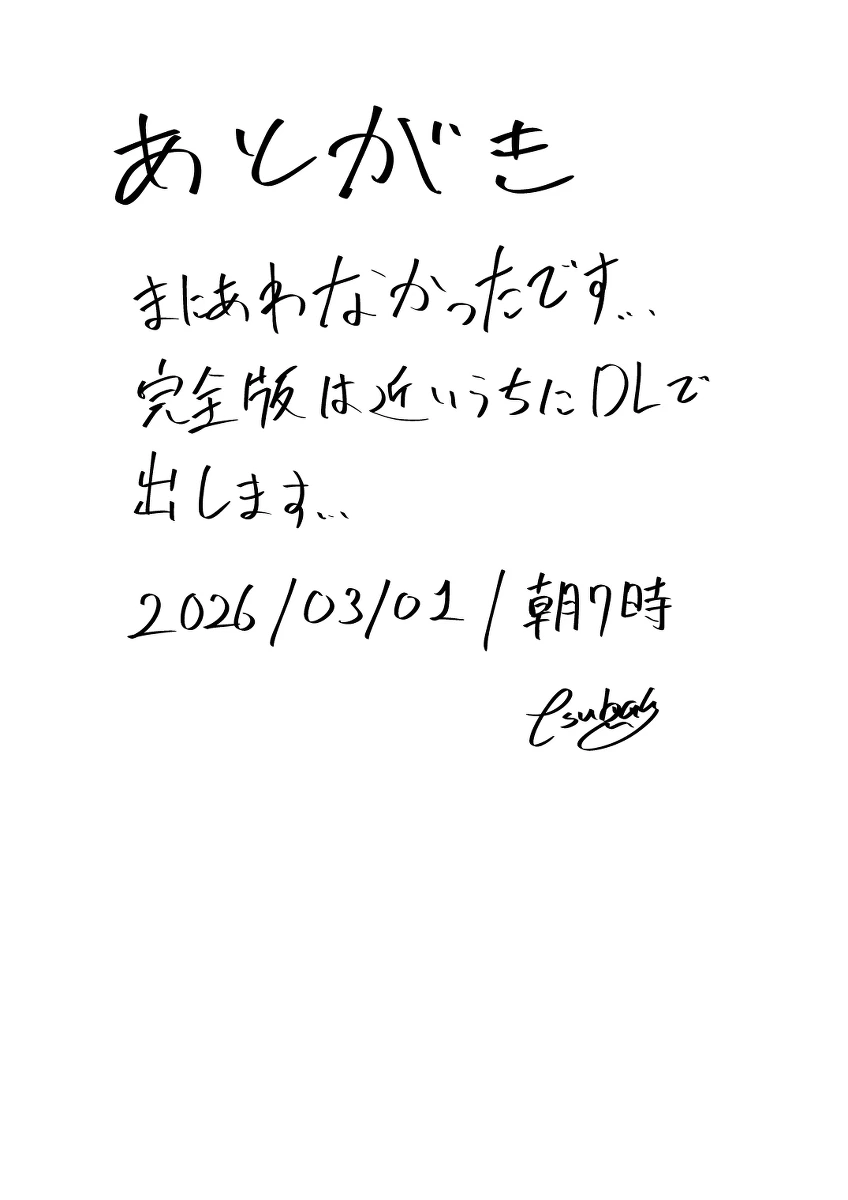 あとがき
まにあわなかったです...
完全版は近いうちにDLで
出します...
2026/03/01/朝7時